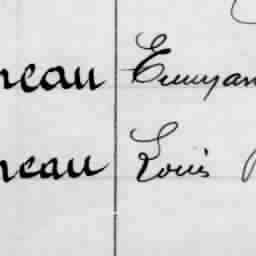 neau Emmyan
neau Louis